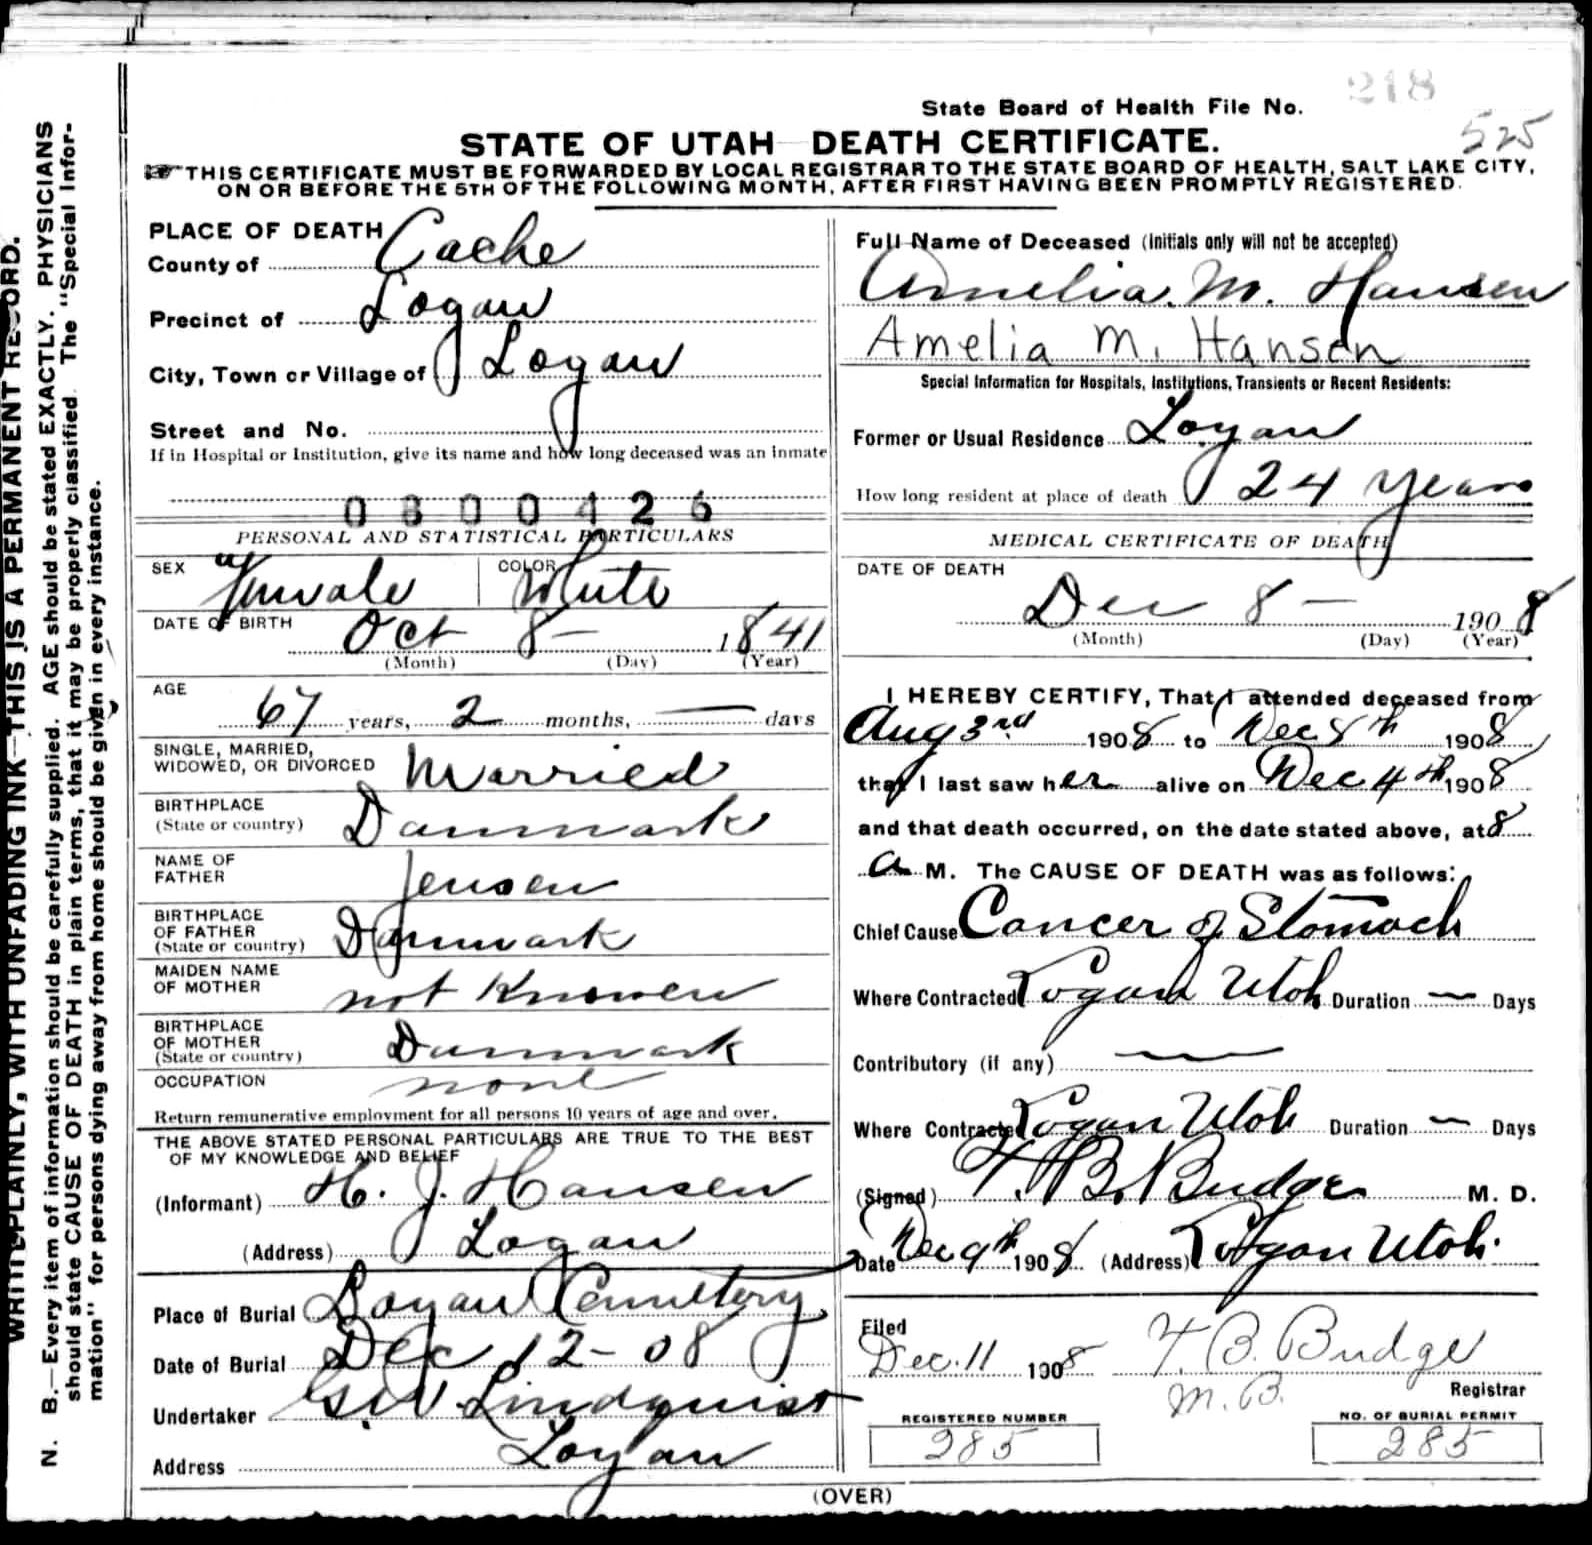 218
State Board of Health File No.
525
STATE OF UTAH DEATH CERTIFICATE.
THIS CERTIFICATE MUST BE FORWARDED BY LOCAL REGISTRAR TO THE STATE BOARD OF HEALTH, SALT LAKE CITY,
ON OR BEFORE THE 5TH OF THE FOLLOWING MONTH, AFTER FIRST HAVING BEEN PROMPTLY REGISTERED.
WRITE PLAINLY, WITH UNFADING INK—THIS IS A PERMANENT RECORD.
N. B.—Every item of information should be carefully supplied. AGE should be stated EXACTLY. PHYSICIANS
should state CAUSE OF DEATH in plain terms, that it may be properly classified. The "Special Infor-
mation" for persons dying away from home should be given in every instance.
PLACE OF DEATH
County of Cache
Precinct of Logan
City, Town or Village of Logan
Street and No.
If in Hospital or Institution, give its name and how long deceased was an inmate
0800426
PERSONAL AND STATISTICAL PARTICULARS
SEX Female COLOR White
DATE OF BIRTH Oct 8 — 1841
(Month) (Day) (Year)
AGE
67 years, 2 months, — days
SINGLE, MARRIED,
WIDOWED, OR DIVORCED Married
BIRTHPLACE
(State or country) Danmark
NAME OF
FATHER Jensen
BIRTHPLACE
OF FATHER
(State or country) Danmark
MAIDEN NAME
OF MOTHER not Knowen
BIRTHPLACE
OF MOTHER
(State or country) Danmark
OCCUPATION none
Return remunerative employment for all persons 10 years of age and over.
THE ABOVE STATED PERSONAL PARTICULARS ARE TRUE TO THE BEST
OF MY KNOWLEDGE AND BELIEF
(Informant) H. J. Hansen
(Address) Logan
Place of Burial Logan Cemetery
Date of Burial Dec 12-08
Undertaker G.W. Lindquist
Address Logan
Full Name of Deceased (Initials only will not be accepted)
Amelia. M. Hansen
Amelia M. Hansen
Special Information for Hospitals, Institutions, Transients or Recent Residents:
Former or Usual Residence Logan
How long resident at place of death 24 years
MEDICAL CERTIFICATE OF DEATH
DATE OF DEATH
Dec 8 — 1908
(Month) (Day) (Year)
I HEREBY CERTIFY, That I attended deceased from
Aug 3rd 1908 to Dec 8th 1908
that I last saw her alive on Dec 4th 1908
and that death occurred, on the date stated above, at 8
a M. The CAUSE OF DEATH was as follows:
Chief Cause Cancer of Stomach
Where Contracted Logan Utah Duration — Days
Contributory (if any) —
Where Contracted Logan Utah Duration — Days
(Signed) F. B. Budge M. D.
Date Dec 9th 1908 (Address) Logan Utah.
Filed
Dec. 11 1908 F. B. Budge
M. B. Registrar
REGISTERED NUMBER
285
NO. OF BURIAL PERMIT
285
(OVER)